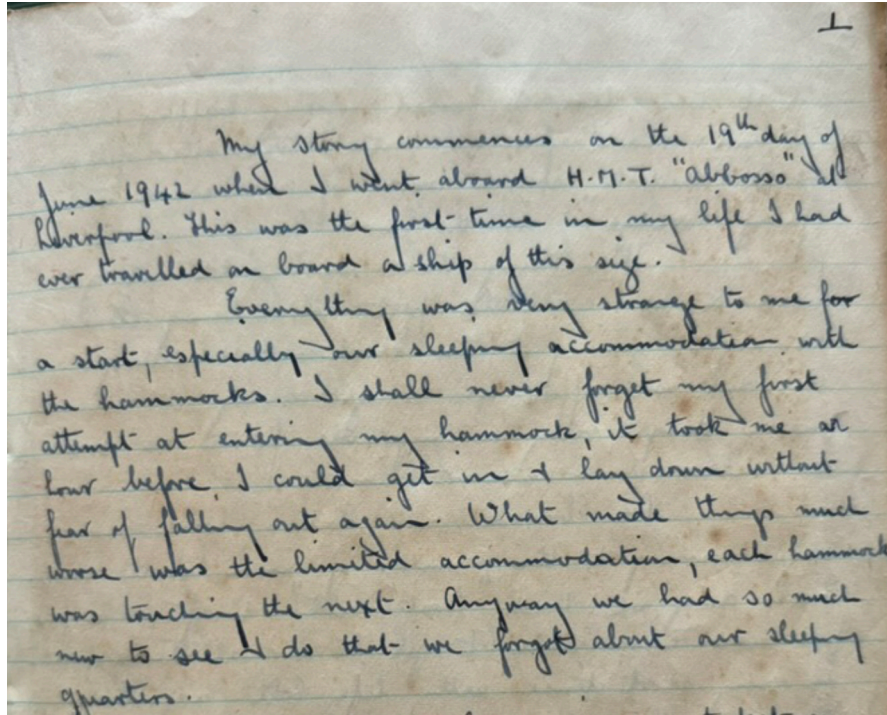 1
My story commences on the 19th day of
June 1942 when I went aboard H.M.T. "Abbosso" at
Liverpool. This was the first time in my life I had
ever travelled on board a ship of this size.
Everything was very strange to me for
a start, especially our sleeping accommodation with
the hammocks. I shall never forget my first
attempt at entering my hammock, it took me an
hour before I could get in & lay down without
fear of falling out again. What made things much
worse was the limited accommodation, each hammock
was touching the next. Anyway we had so much
new to see & do that we forgot about our sleeping
quarters.